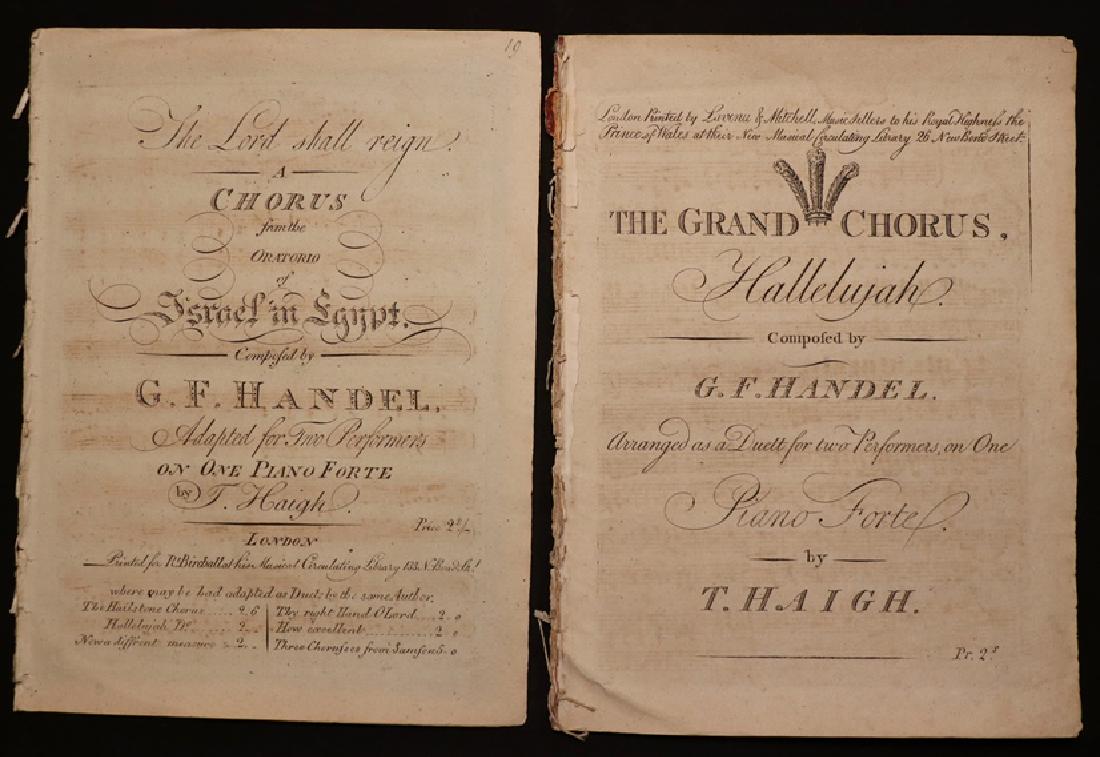 19
The Lord shall reign.
A
CHORUS
from the
ORATORIO
of
Israel in Egypt.
Compoſed by
G. F. HANDEL.
Adapted for Two Performers
ON ONE PIANO FORTE
by T. Haigh.
Price 2s/
LONDON
Printed for Rt. Birchall at his Musical Circulating Library 133 N. Bond St.
where may be had adapted as Duets by the same Author.
The Hailstone Chorus .... 2.6 Thy right Hand O Lord .... 2.0
Hallelujah Do. .... 2.. How excellent .... 2.0
Now a diffrent measure .. 2.. Three Choruſses from Samson 5.0
London Printed by Lavenu & Mitchell, Music Sellers to his Royal Highness the
Prince of Wales at their New Musical Circulating Library 26 New Bond Street.
THE GRAND CHORUS,
Hallelujah.
Compoſed by
G. F. HANDEL.
Arranged as a Duett for two Performers, on One
Piano Forte.
by
T. HAIGH.
Pr. 2s